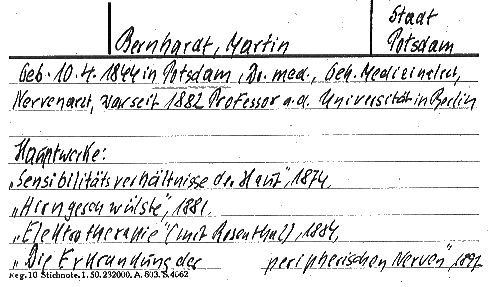 Stadt
Bernhardt, Martin Potsdam
Geb. 10.4.1844 in Potsdam, Dr. med., Geh. Medizinalrat,
Nervenarzt, war seit 1882 Professor a.d. Universität in Berlin
Hauptwerke:
„Sensibilitätsverhältnisse der Haut", 1874,
„Hirngeschwülste", 1881,
„Elektrotherapie" (mit Rosenthal), 1884,
„Die Erkrankung der peripherischen Nerven" 1897
Reg. 10 Stichnote. I. 50. 232000. A. 803. S. 4662